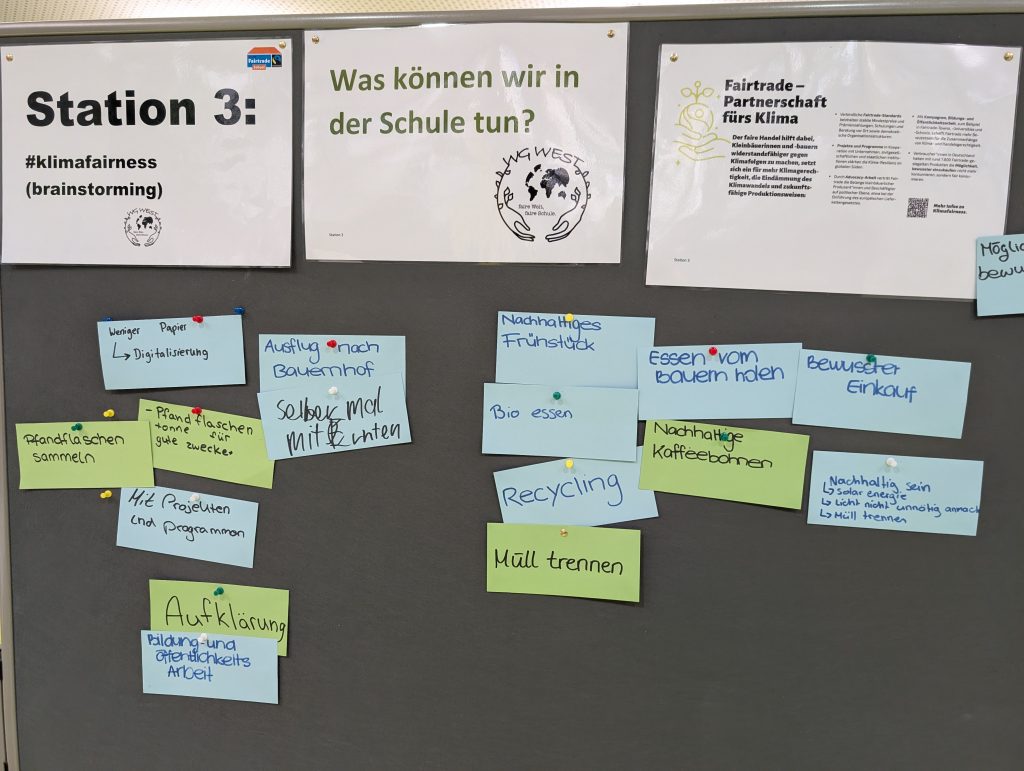 Station 3:
#klimafairness
(brainstorming)
WG WEST
Fairtrade
Was können wir in
der Schule tun?
WG WEST
faire Welt,
faire Schule.
Station 3
Fairtrade –
Partnerschaft
fürs Klima
Der faire Handel hilft dabei,
Kleinbäuerinnen und -bauern
widerstandsfähiger gegen
Klimafolgen zu machen, setzt
sich ein für mehr Klimagerech-
tigkeit, die Eindämmung des
Klimawandels und zukunfts-
fähige Produktionsweisen:
Mehr Infos zu
Klimafairness.
Station 3
Möglic
bewu
Weniger Papier
↳ Digitalisierung
Ausflug nach
Bauernhof
selber mal
mit Ernten
Pfandflaschen
sammeln
- Pfandflaschen
tonne für
gute zwecke.
Mit Projekten
und programmen
Aufklärung
Bildung-und
öffentlichkeits
Arbeit
Nachhaltiges
Frühstück
Bio essen
Recycling
Müll trennen
Essen vom
Bauern holen
Nachhaltige
Kaffeebohnen
Bewusster
Einkauf
Nachhaltig sein
↳ solar energie
↳ Licht nicht unnötig anmach
↳ Müll trennen